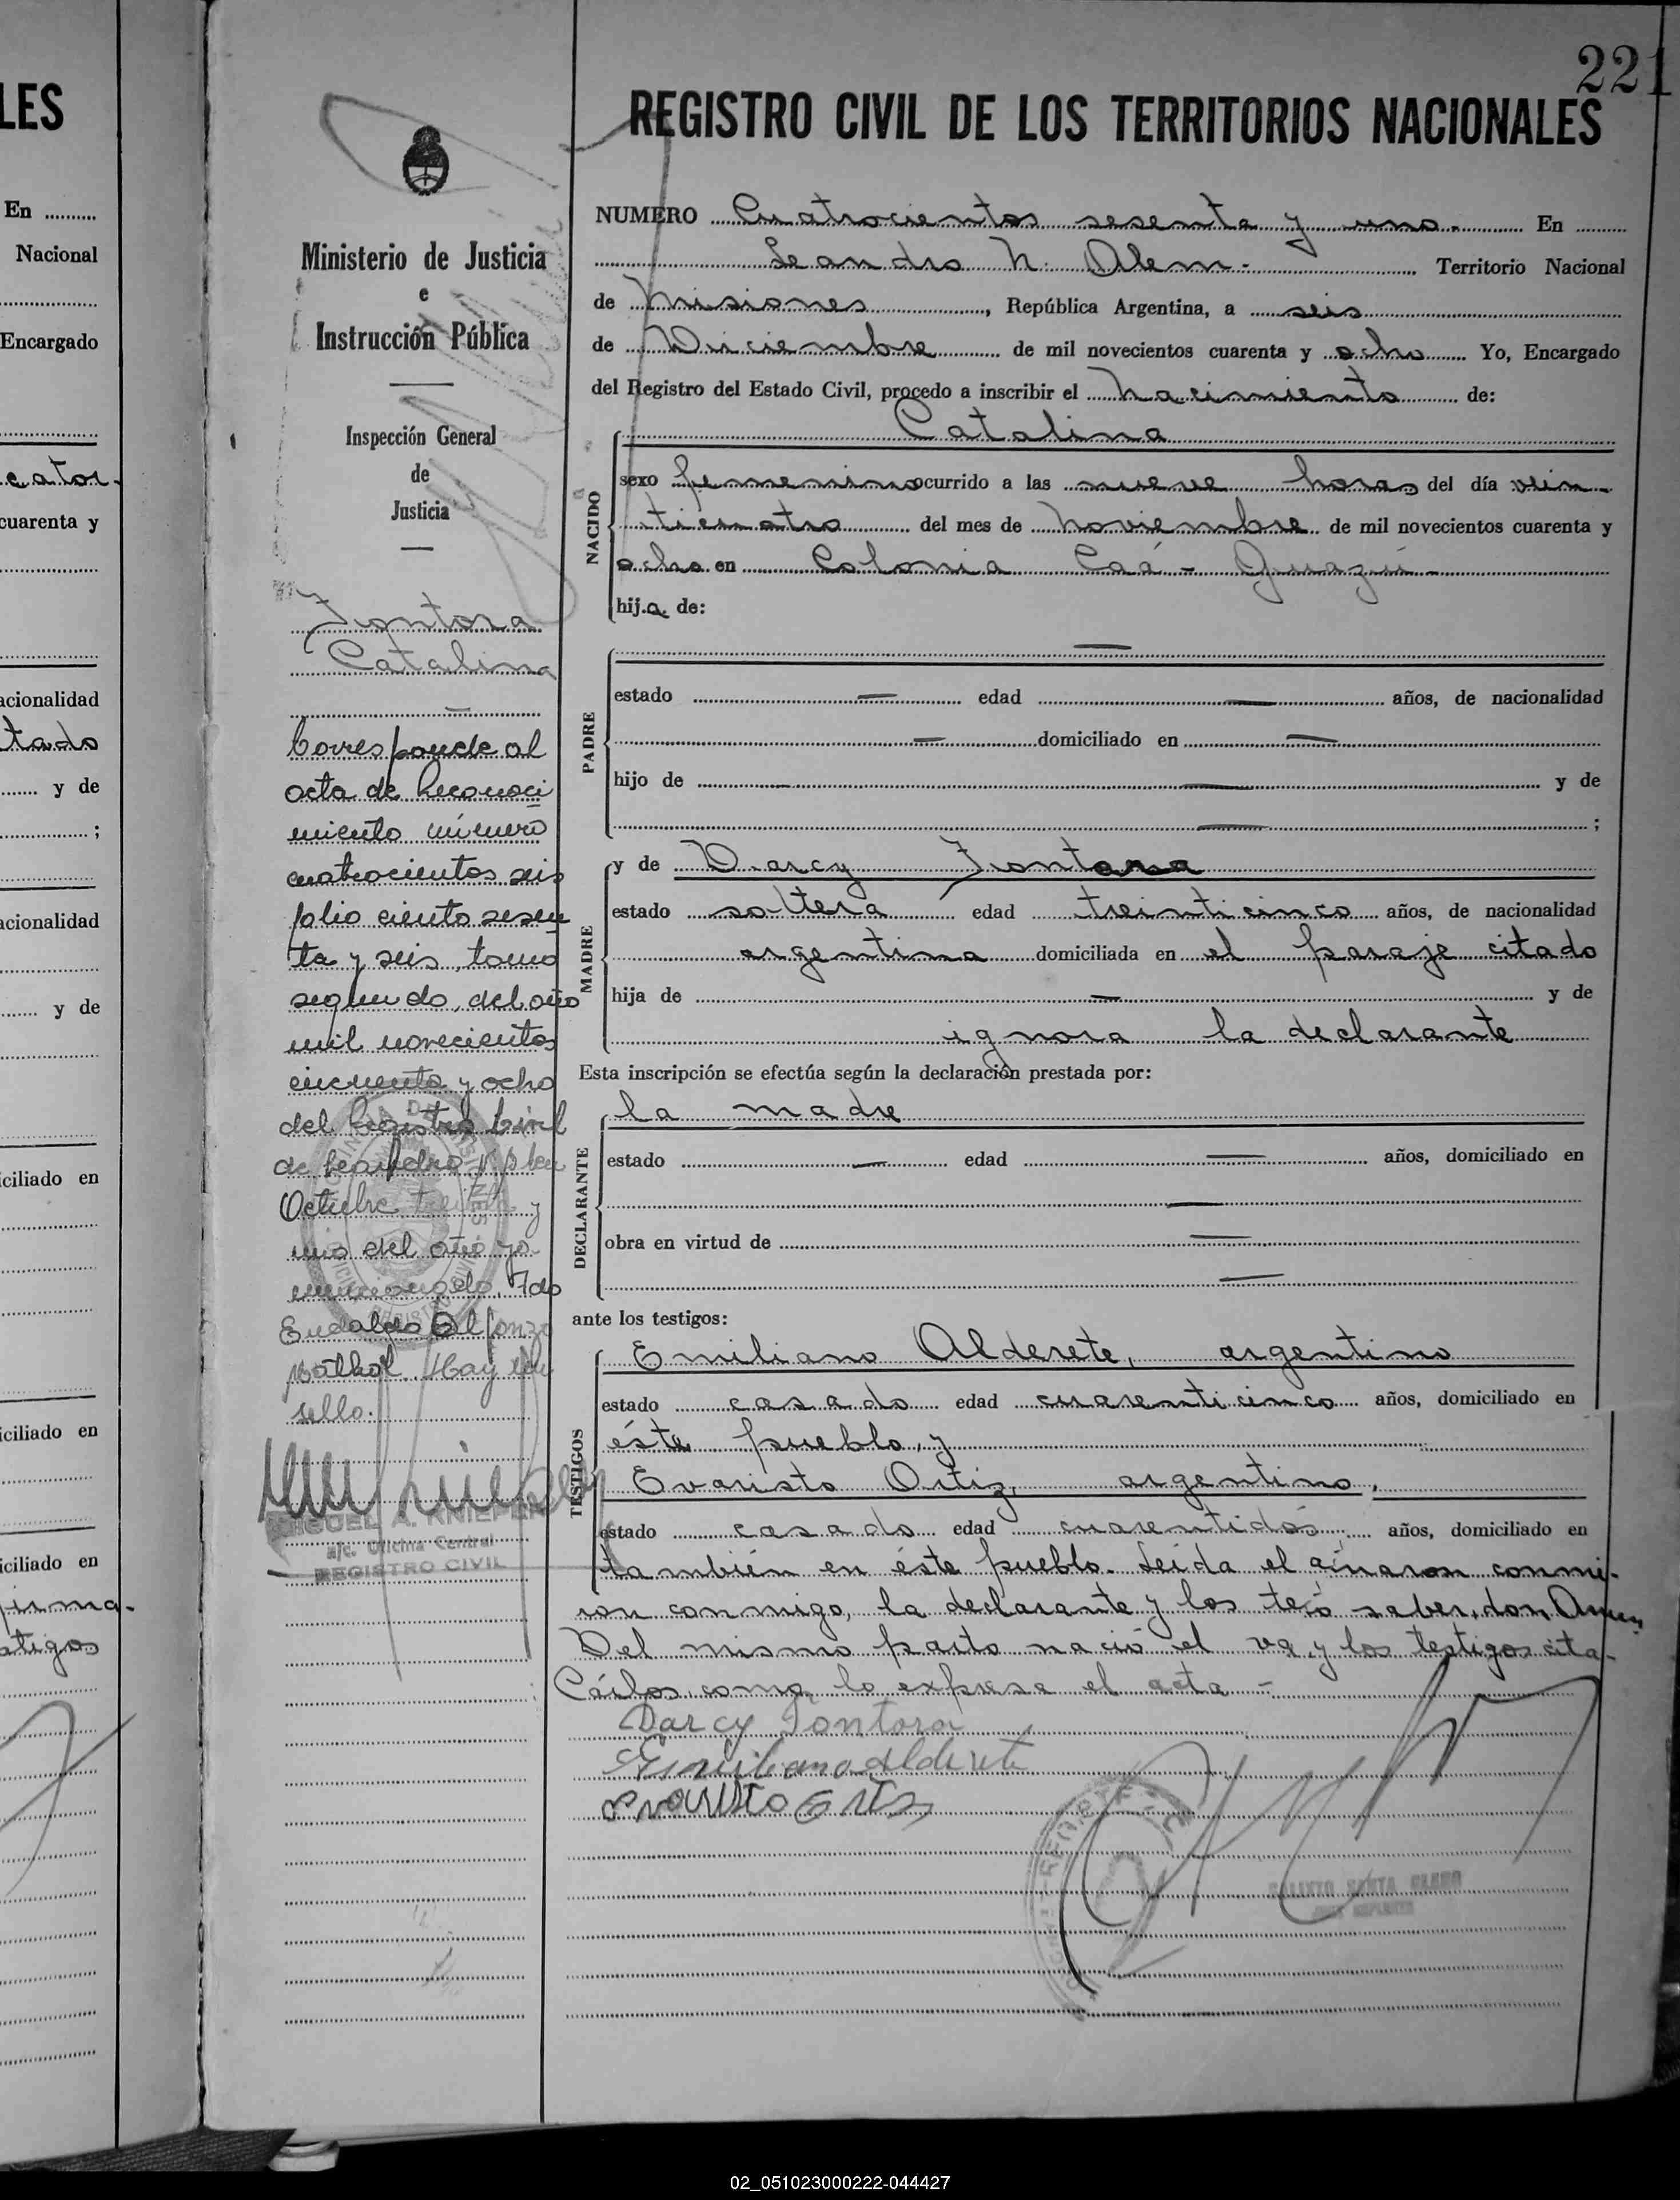 LES
En
Nacional
Encargado
cator-
cuarenta y
acionalidad
tado
y de
;
acionalidad
y de
iciliado en
iciliado en
iciliado en
firma-
stigos
221
REGISTRO CIVIL DE LOS TERRITORIOS NACIONALES
Ministerio de Justicia
e
Instrucción Pública
Inspección General
de
Justicia
Fontora
Catalina
Corresponde al
acta de Reconoci
miento número
cuatrocientos seis
folio ciento sesen
ta y seis, tomo
segundo, del año
mil novecientos
cincuenta y ocho
del Registro Civil
de Leandro N. Alem
Octubre treinta y
uno del año ya
mencionado. Fdo
Eudaldo Alfonzo
Hay un
sello.
MIGUEL A. KNIEPER
a/c. Oficina Central
REGISTRO CIVIL
NUMERO Cuatrocientos sesenta y uno. En
Leandro N. Alem. Territorio Nacional
de Misiones, República Argentina, a seis
de Diciembre de mil novecientos cuarenta y ocho Yo, Encargado
del Registro del Estado Civil, procedo a inscribir el nacimiento de:
NACIDO
Catalina
sexo femenino ocurrido a las nueve horas del día vein-
ticuatro del mes de noviembre de mil novecientos cuarenta y
ocho en Colonia Caá-Guazú-
hija de:
PADRE
estado — edad — años, de nacionalidad
— domiciliado en —
hijo de — y de
— ;
MADRE
y de Darcy Fontora
estado soltera edad treinticinco años, de nacionalidad
argentina domiciliada en el paraje citado
hija de — y de
ignora la declarante
Esta inscripción se efectúa según la declaración prestada por:
DECLARANTE
la madre
estado — edad — años, domiciliado en
—
obra en virtud de —
—
ante los testigos:
TESTIGOS
Emiliano Alderete, argentino
estado casado edad cuarenticinco años, domiciliado en
éste pueblo, y
Evaristo Ortiz, argentino,
estado casado edad cuarentidós años, domiciliado en
también en éste pueblo. Leída el
ron conmigo, la declarante y los
Del mismo parto nació el
Cárlos como lo expresa el acta -
Darcy Fontora
Emiliano Alderete
Evaristo Ortiz
CALIXTO SANTA CLARA
02_051023000222-044427